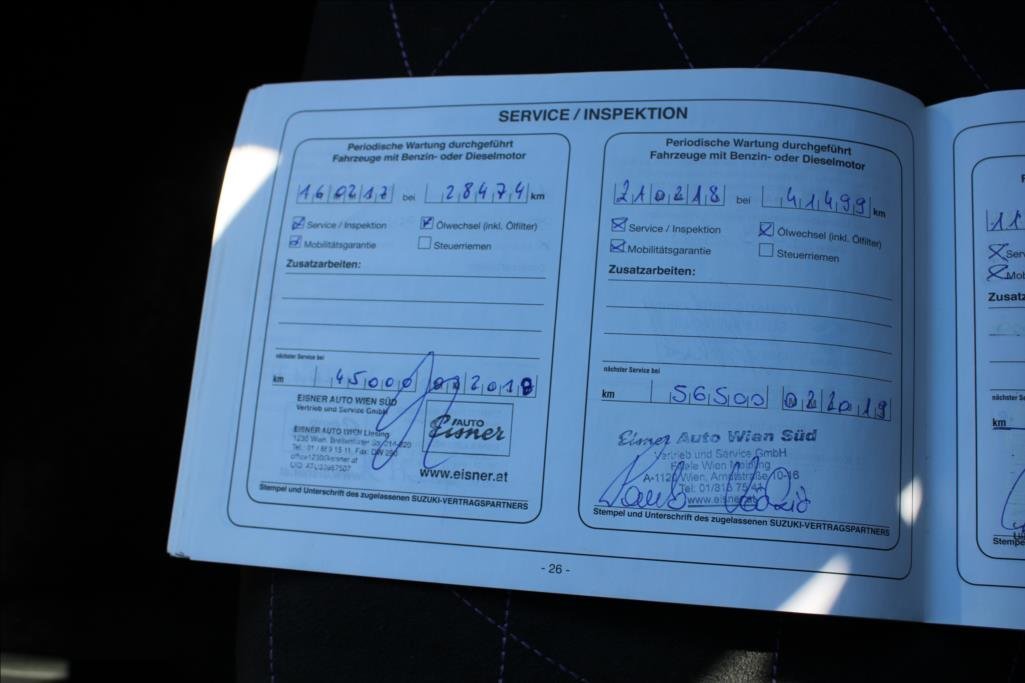 SERVICE / INSPEKTION
Periodische Wartung durchgeführt
Fahrzeuge mit Benzin- oder Dieselmotor
160217 bei 28474 km
Service / Inspektion Ölwechsel (inkl. Ölfilter)
Mobilitätsgarantie Steuerriemen
Zusatzarbeiten:
nächster Service bei
km 45000 022018
EISNER AUTO WIEN SÜD
Vertrieb und Service GmbH
EISNER AUTO WIEN Liesing
1230 Wien,
office1230@eisner.at
AUTO
Eisner
www.eisner.at
Stempel und Unterschrift des zugelassenen SUZUKI-VERTRAGSPARTNERS
Periodische Wartung durchgeführt
Fahrzeuge mit Benzin- oder Dieselmotor
210218 bei 41499 km
Service / Inspektion Ölwechsel (inkl. Ölfilter)
Mobilitätsgarantie Steuerriemen
Zusatzarbeiten:
nächster Service bei
km 56500 022019
Eisner Auto Wian Süd
Vertrieb und Service GmbH
Filiale Wien Meidling
A-1120 Wien, Arndtstraße 10-16
Tel: 01/813 75 41
www.eisner.at
Stempel und Unterschrift des zugelassenen SUZUKI-VERTRAGSPARTNERS
- 26 -
11
Serv
Mob
Zusatz
nächster
km
Stempe